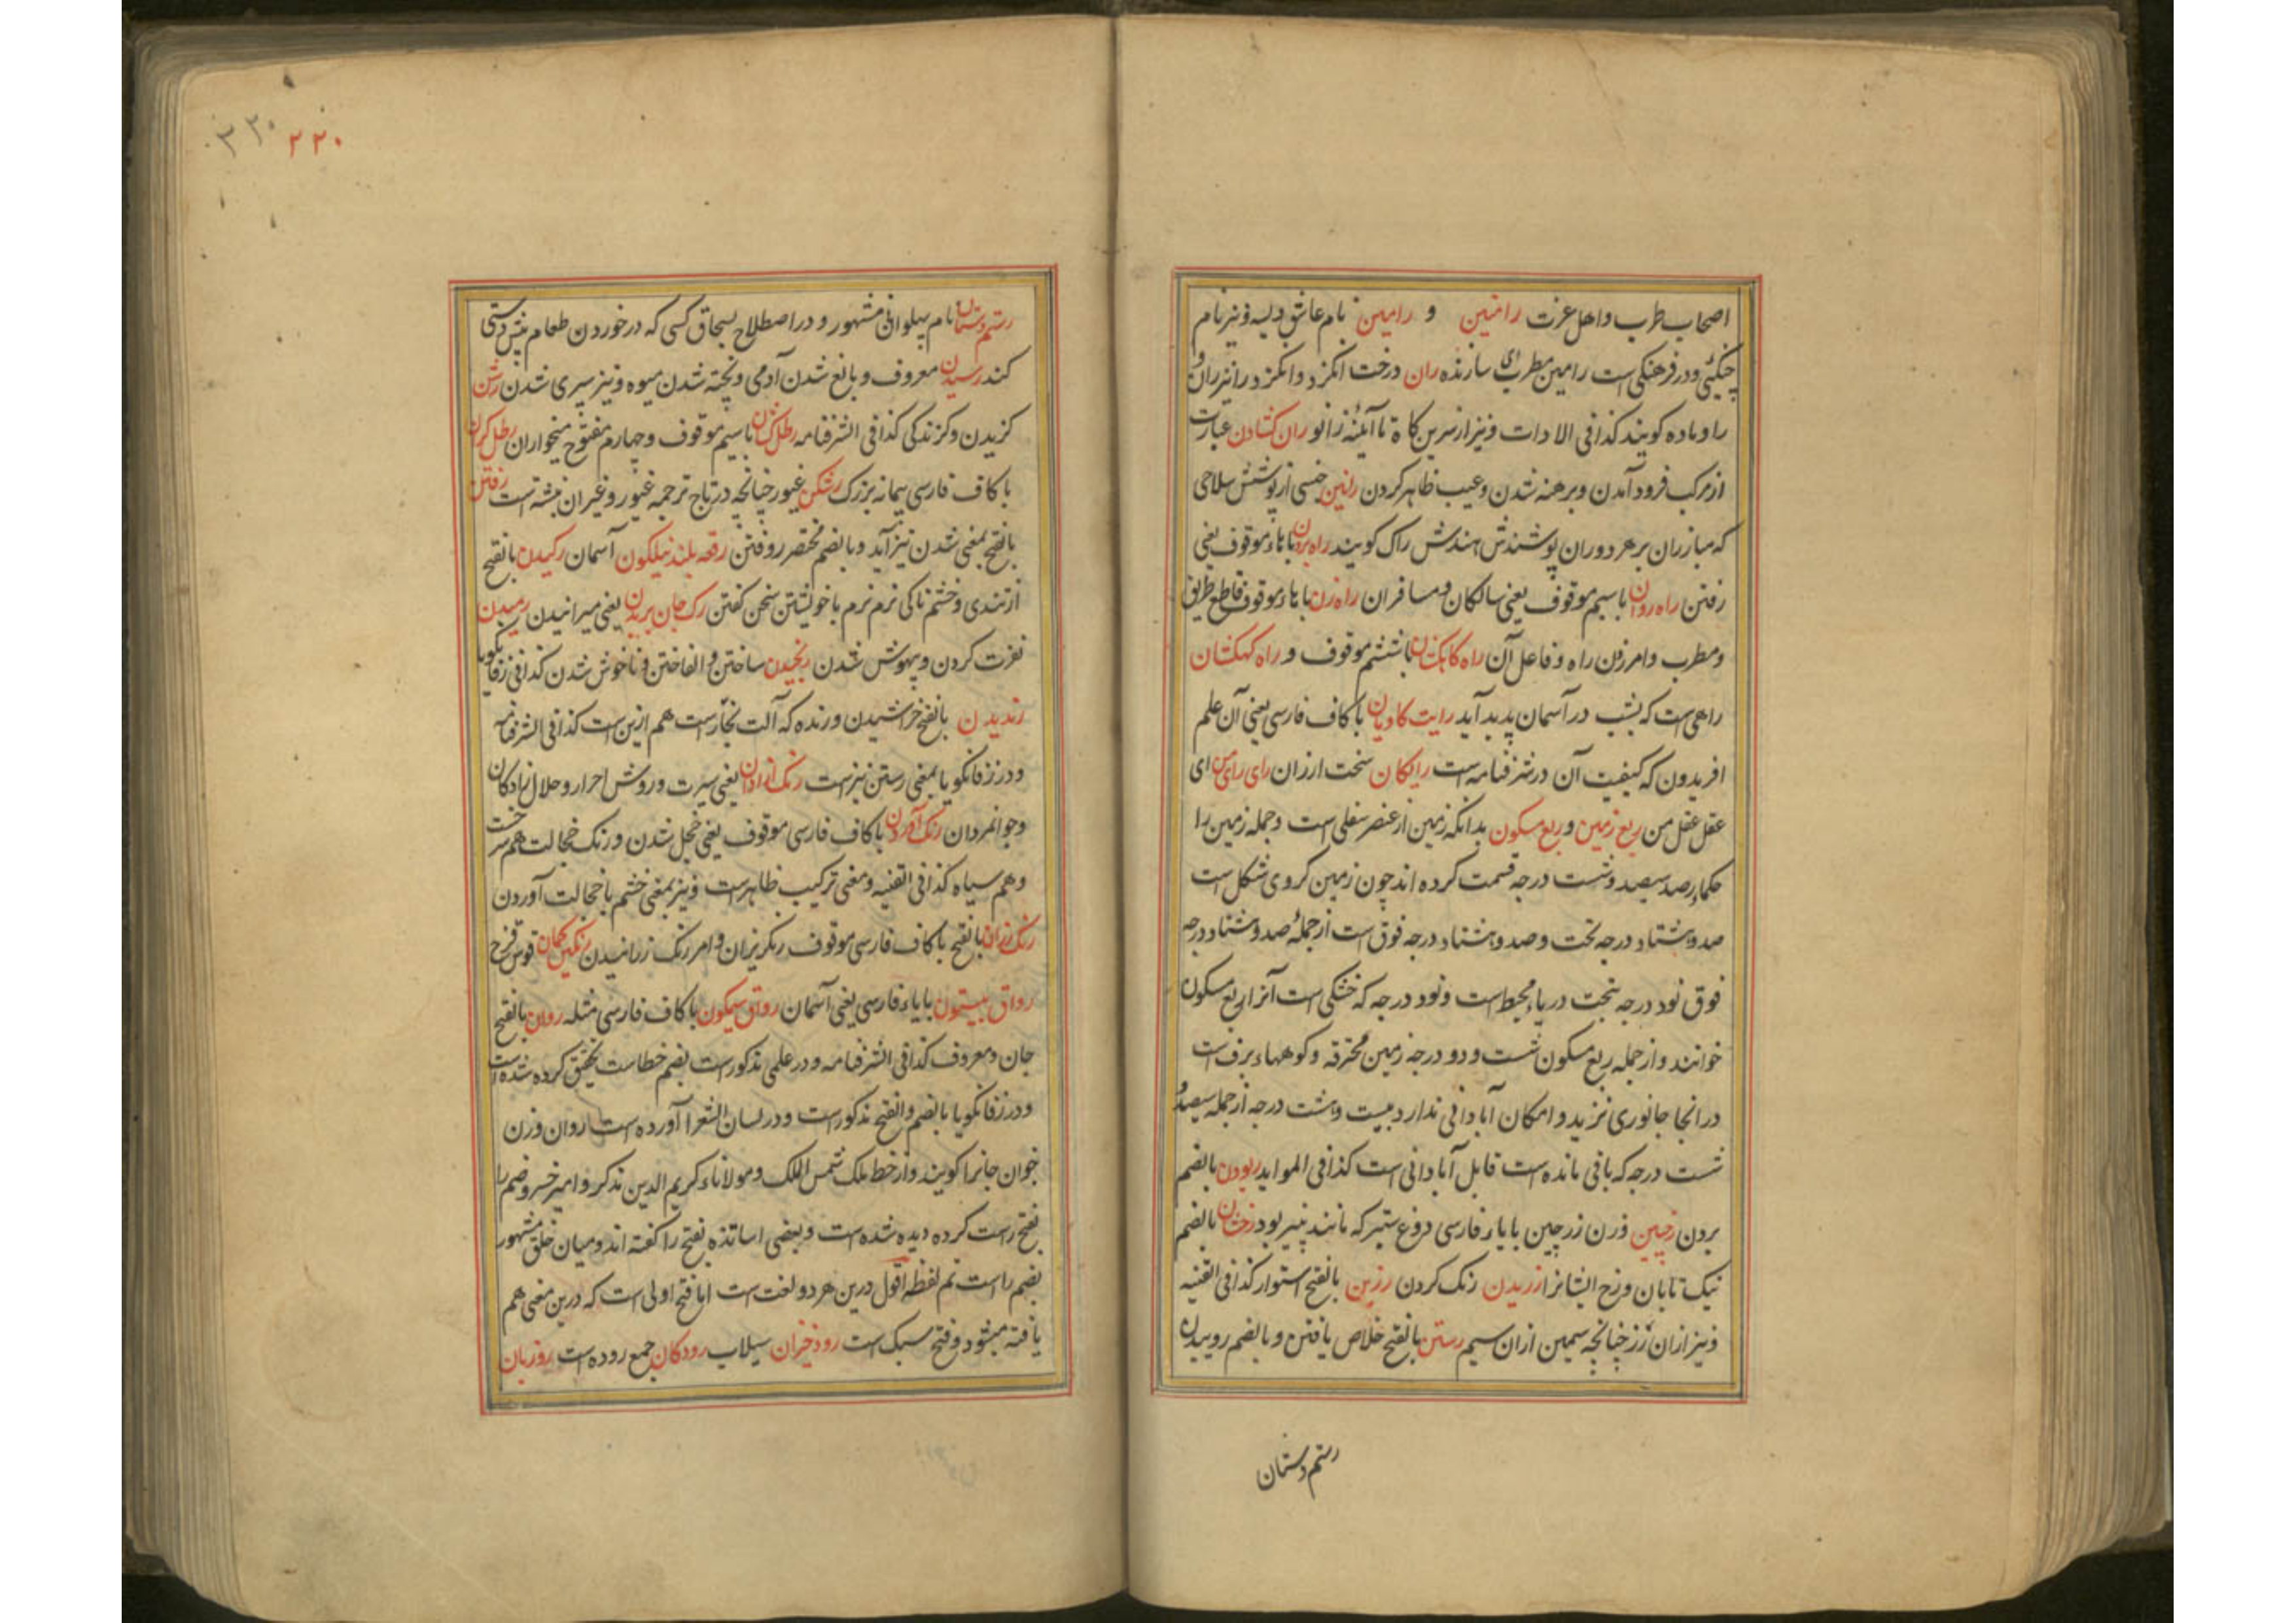 اصحاب طرب و اهل عزت رامتین و رامین نام عاشق ویسه و نیز نام
چنگئی و در فرهنگی است رامین مطربی سازنده ران درخت انکزد و انکزد را نیز ران
را و ماده کویند کذا فی الادات و نیز از سرین کاه تا آئینه زانو ران کشادن عبارت
از مرکب فرود آمدن و برهنه شدن و عیب ظاهر کردن رانین جنسی از پوشش سلاحی
که مبارزان بر هر دو ران پوشندش هندش راک کویند راه بردن با هاء موقوف یعنی
رفتن راه روان با سیم موقوف یعنی سالکان و مسافران راه زن با هاء موقوف قاطع طریق
و مطرب و امر زدن راه و فاعل آن راه کاهکشان با ششم موقوف و راه کهکشان
راهی است که بشب در آسمان پدید آید رایت کاویان با کاف فارسی یعنی آن علم
افریدون که کیفیت آن در شرفنامه است رایکان سخت ارزان رای رای من ای
عقل عقل من ربع زمین و ربع مسکون بدانکه زمین از عنصر سفلی است و جمله زمین را
حکماء رصد سیصد و شست درجه قسمت کرده اند چون زمین کروی شکل است
صد و هشتاد درجه تحت و صد و هشتاد درجه فوق است از جملهٔ صد و هشتاد درجه
فوق نود درجه تحت دریاء محیط است و نود درجه که خشکی است آنرا ربع مسکون
خوانند و از جمله ربع مسکون شست و دو درجه زمین محترقه و کوههاء برف است
در انجا جانوری نزید و امکان آبادانی ندارد بیست و هشت درجه از جمله سیصد و
شست درجه که باقی مانده است قابل آبادانی است کذا فی الموايد ربودن بالضم
بردن رخبین وزن زرچین با یاء فارسی دوغ ستبر که مانند پنیر بود رخشان بالضم
نیک تابان و رخ ایشانرا رزیدن رنک کردن رزین بالفتح استوار کذا فی القنیه
و نیز از ان زر چنانچه سیمین از ان سیم رستن بالفتح خلاص یافتن و بالضم روییدن
رستم دستان
۲۲۰
رستم دستان نام پهلوانی مشهور و در اصطلاح بسحاق کسی که در خوردن طعام پیش دستی
کند رسیدن معروف و بالغ شدن آدمی و پخته شدن میوه و نیز سپری شدن رشن
کزیدن و کزندکی کذا فی الشرفنامه رطل کشان با سیم موقوف و چهارم مفتوح میخواران رطل کران
با کاف فارسی پیمانه بزرک رشکن غیور چنانچه در تاج ترجمه غیور و غیران نبشته است رفتن
بالفتح بمعنی شدن نیز آید و بالضم مختصر روفتن رقعه بلند نیلکون آسمان رکیدن بالفتح
از تندی و خشمناکی نرم نرم با خویشتن سخن کفتن رک جان بریدن یعنی میرانیدن رمیدن
نفرت کردن و بیهوش شدن رنجیدن ساختن و الفاختن و ناخوش شدن کذا فی زفانکویا
رندیدن بالفتح خراشیدن و رنده که آلت نجارست هم ازین است کذا فی الشرفنامه
و در زفانکویا بمعنی رستن نیز است رنک ازادان یعنی سیرت و روش احرار و حلال زادکان
و جوانمردان رنک آوردن با کاف فارسی موقوف یعنی خجل شدن و رنک خجالت هم سرخ است
و هم سیاه کذا فی القنیه و معنی ترکیب ظاهرست و نیز بمعنی خشم با خجالت آوردن
رنک رزان بالفتح با کاف فارسی موقوف رنکریزان و امر رنک رزانیدن رنکین کمان قوس قزح
رواق بیستون با یاء فارسی یعنی آسمان رواق نیلکون با کاف فارسی مثله روان بالفتح
جان و معروف کذا فی الشرفنامه و در علمی مذکورست بضم خطاست تحقیق کرده شده است
و در زفانکویا بالضم و الفتح مذکورست و در لسان الشعرا آورده است روان وزن
جوان جانرا کویند و از خط ملک شمس الملک و مولاناء کریم الدین مذکر و امیر خسرو ضم را
بفتح راست کرده دیده شده است و بعضی اساتذه بفتح را کفته اند و میان خلق مشهور
بضم راست ثم لفظه اقول درین هر دو لغت است اما فتح اولی است که درین معنی هم
یافته میشود و فتح سبک است رودخیزان سیلاب رودکان جمع روده است روزبان